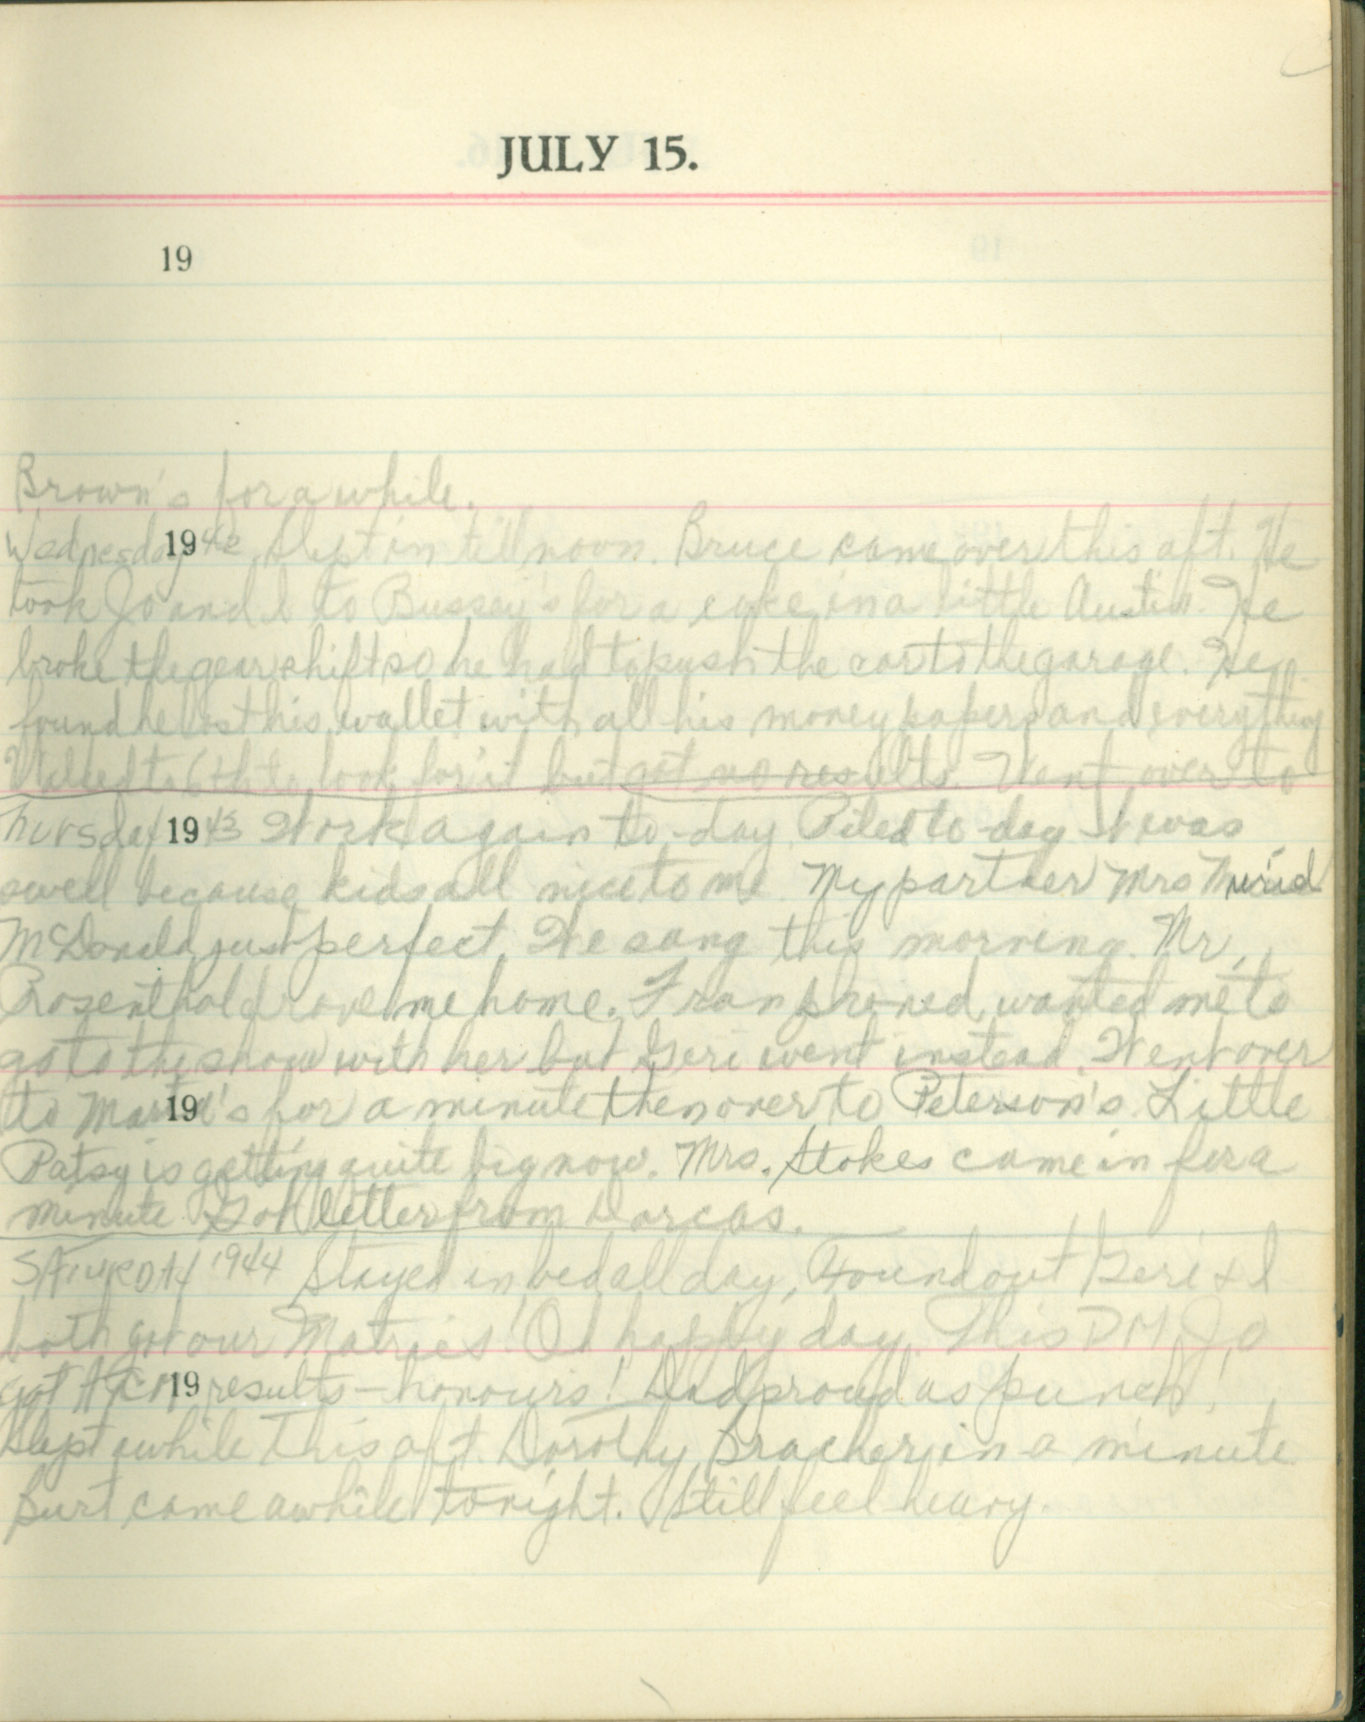 JULY 15.
19
Brown's for a while.
Wednesday 1942 Slept in till noon. Bruce came over this aft. He
took Jo and I to Bussey's for a coke in a little Austin. He
broke the gear shift so he had to push the car to the garage. He
found he lost his wallet with all his money papers and everything
Walked to 6th to look for it but got no results. Went over to
Thursday 1943 Work again to-day. Piled to-day. It was
swell because kids all nice to me. My partner Mrs Muriel
McDonald just perfect. We sang this morning. Mr.
Rosenthal drove me home. Fran phoned, wanted me to
go to the show with her but Geri went instead. Went over
to 19 for a minute then over to Peterson's. Little
Patsy is getting quite big now. Mrs. Stokes came in for a
minute. Got letter from Dorcas.
SATURDAY 1944 Stayed in bed all day. Found out Geri & I
both got our Matrics! Oh happy day. This P.M. Jo
got 19 results - honours! Dad proud as punch!
Slept awhile this aft. Dorothy Bracher in a minute
Burt came awhile tonight. Still feel heavy.